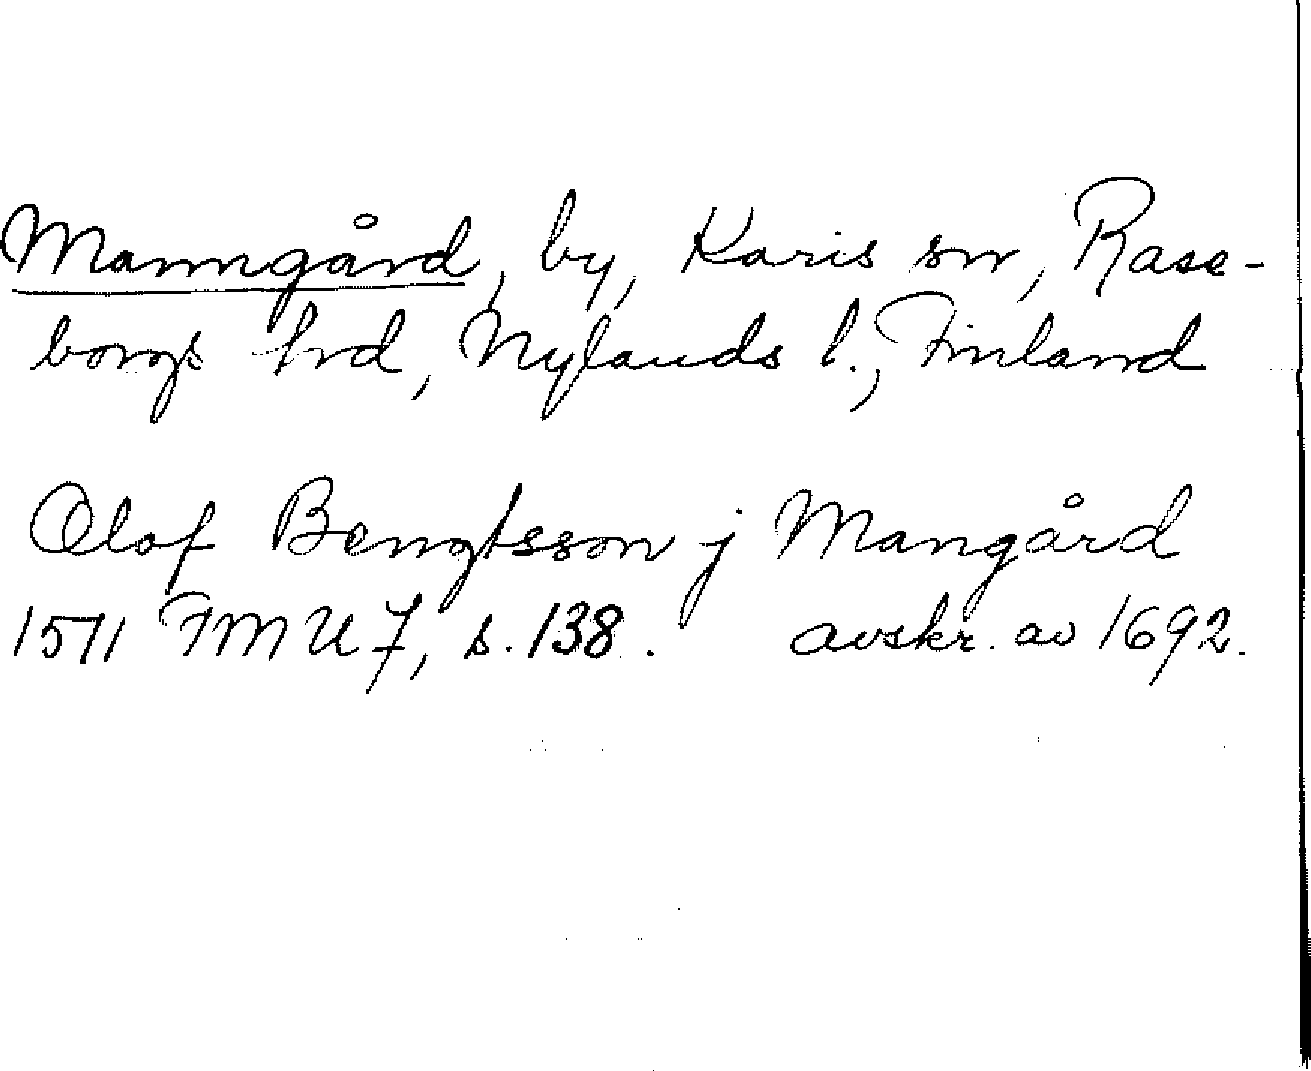 Manngård, by, Karis sn, Rase-
borgs hrd, Nylands l., Finland
Olof Bengtsson j Mangård
1511 FMU 7, s. 138. avskr. av 1692.